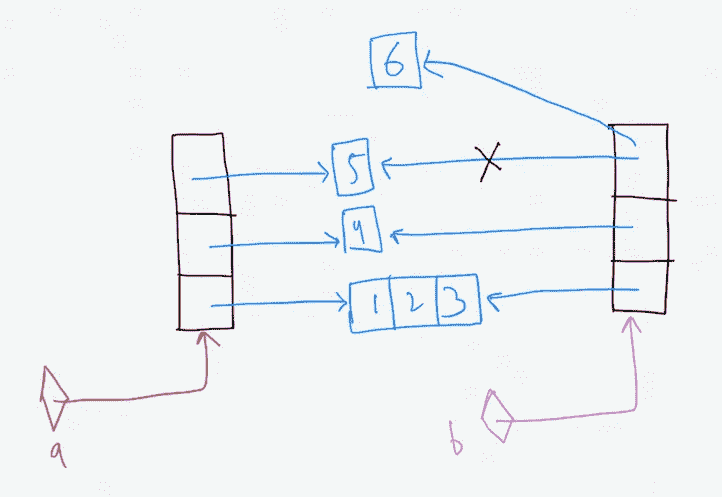 6
5
4
1 2 3
a
b